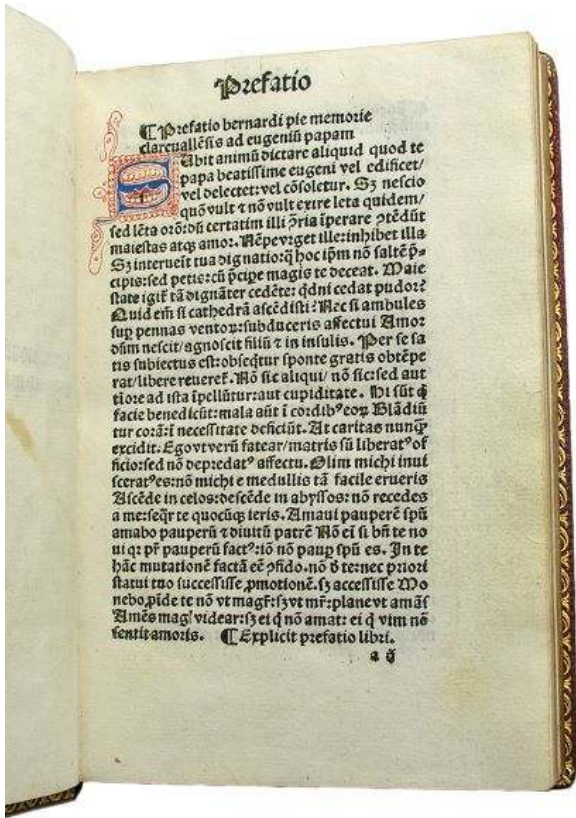 Prefatio
¶ Prefatio bernardi pie memorie
clareuallēsis ad eugeniū papam
Subit animū dictare aliquid quod te
papa beatissime eugeni vel edificet/
vel delectet: vel cōsoletur. Sꝫ nescio
quō vult ⁊ nō vult exire leta quidem/
sed lēta orō: dū certatim illi ꝯ̄ria īperare ꝓtēdūt
maiestas atqꝫ amor. Nēpe vrget ille: inhibet illa
Sꝫ interueīt tua dignatio: q̄ hoc ipm̄ nō saltē p̄-
cipis: sed petis: cū p̄cipe magis te deceat. Maie
state igit᷑ tā dignāter cedēte: qdni cedat pudor?
Quid em̄ si cathedrā ascēdisti? Nec si ambules
suꝑ pennas ventoꝝ: subduceris affectui Amor
dn̄m nescit/ agnoscit filiū ⁊ in insulis. Per se sa
tis subiectus est: obseqtur sponte gratis obtēpe
rat/ libere reueret᷑. Nō sic aliqui/ nō sic: sed aut
tiore ad ista īpellūtur: aut cupiditate. Hi sūt q̄
facie benedicūt: mala aūt ī cordibꝰ eoꝝ Blādiū
tur corā: ī necessitate deficiūt. At caritas nunq̄
excidit. Ego vt verū fatear/ matris sū liberatꝰ of
ficio: sed nō depredatꝰ affectu. Olim michi inui
sceratꝰ es: nō michi e medullis tā facile erueris
Ascēde in celos: descēde in abyssos: nō recedes
a me: seqr te quocūqꝫ ieris. Amaui pauperē spū
amabo pauperū ⁊ diuitū patrē Nō eī si bn̄ te no
ui qr pr̄ pauperū factꝰ: iō nō pauꝑ spū es. In te
hāc mutationē factā eē ꝯfido. nō ð te: nec priori
statui tuo successisse ꝓmotionē. sꝫ accessisse Mo
nebo ꝓīde te nō vt magr̄: sꝫ vt mr̄: plane vt amās̄
Amēs mag̕ videar: sꝫ ei q̄ nō amat: ei q̄ vim nō
sentit amoris. ¶ Explicit prefatio libri.
a ij